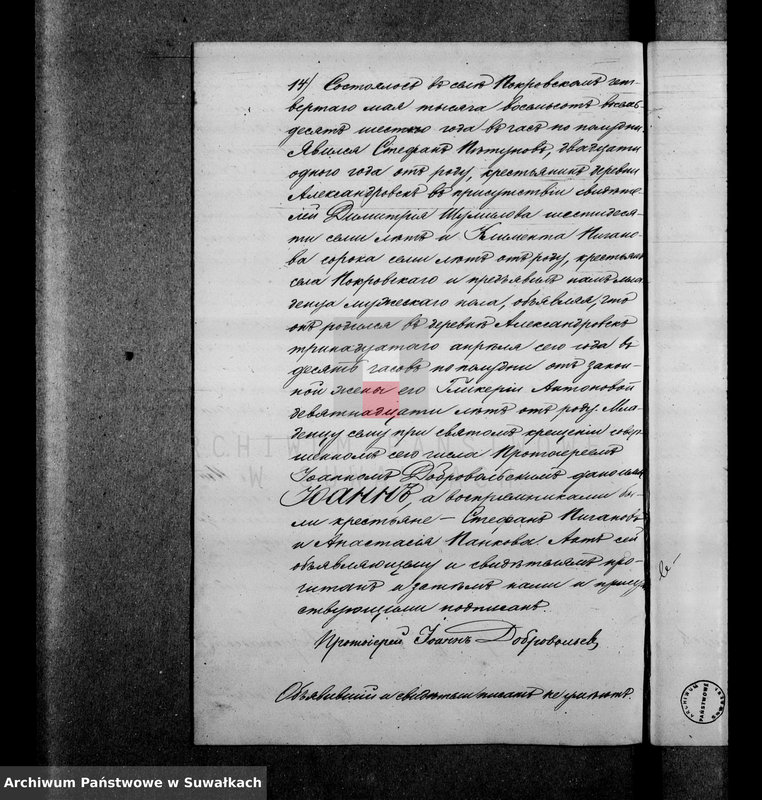 14/ Состоялось въ селѣ Покровскомъ чет-
вертаго мая тысяча восемьсотъ восемь-
десятъ шестаго года въ часъ по полудни.
Явился Стефанъ Пѣтуховъ, двадцати
одного года отъ роду, крестьянинъ деревни
Александровскъ въ присутствіи свидѣте-
лей Димитрія Шумилова шестидеся-
ти семи лѣтъ и Климента Пигано-
ва сорока семи лѣтъ отъ роду, крестьянъ
села Покровскаго и предъявилъ намъ мла-
денца мужескаго пола, объявляя, что
онъ родился въ деревнѣ Александровскъ
тринадцатаго апрѣля сего года въ
десять часовъ по полудни отъ закон-
ной жены его Гликеріи Антоновой
девятнадцати лѣтъ отъ роду. Мла-
денцу сему при святомъ крещеніи совер-
шенномъ сего числа Протоіереемъ
Іоанномъ Добровольскимъ дано имя
Іоаннъ, а воспріемниками бы-
ли крестьяне – Стефанъ Пигановъ
и Анастасія Панкова. Актъ сей
объявляющему и свидѣтелямъ про-
читанъ и затѣмъ нами и присут-
ствующими подписанъ
Протоіерей Іоаннъ Добровольскій
Объявившій и свидѣтели писать не умѣютъ.
ARCHIWUM PAŃSTWOWE
W SUWAŁKACH
ARCHIWUM PAŃSTWOWE
Archiwum Państwowe w Suwałkach